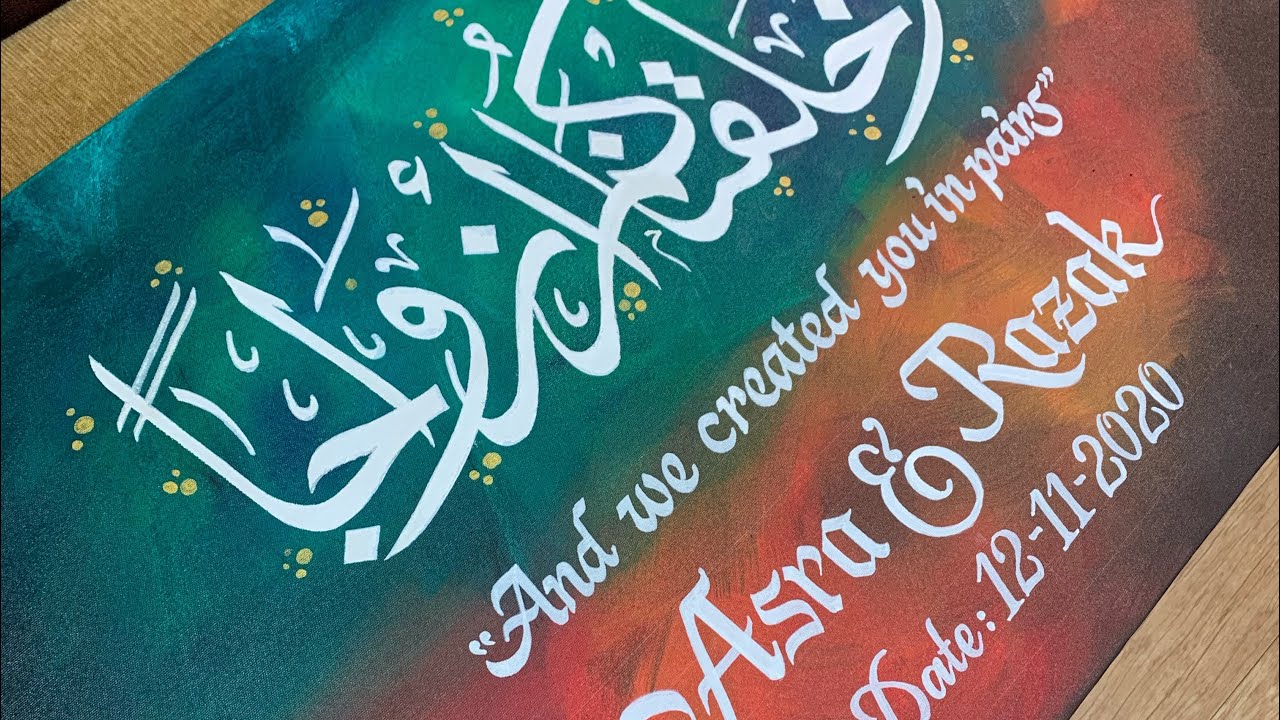 وَخَلَقْنَاكُمْ أَزْوَاجًا
“And we created you in pairs”
Asra & Razak
Date: 12-11-2020